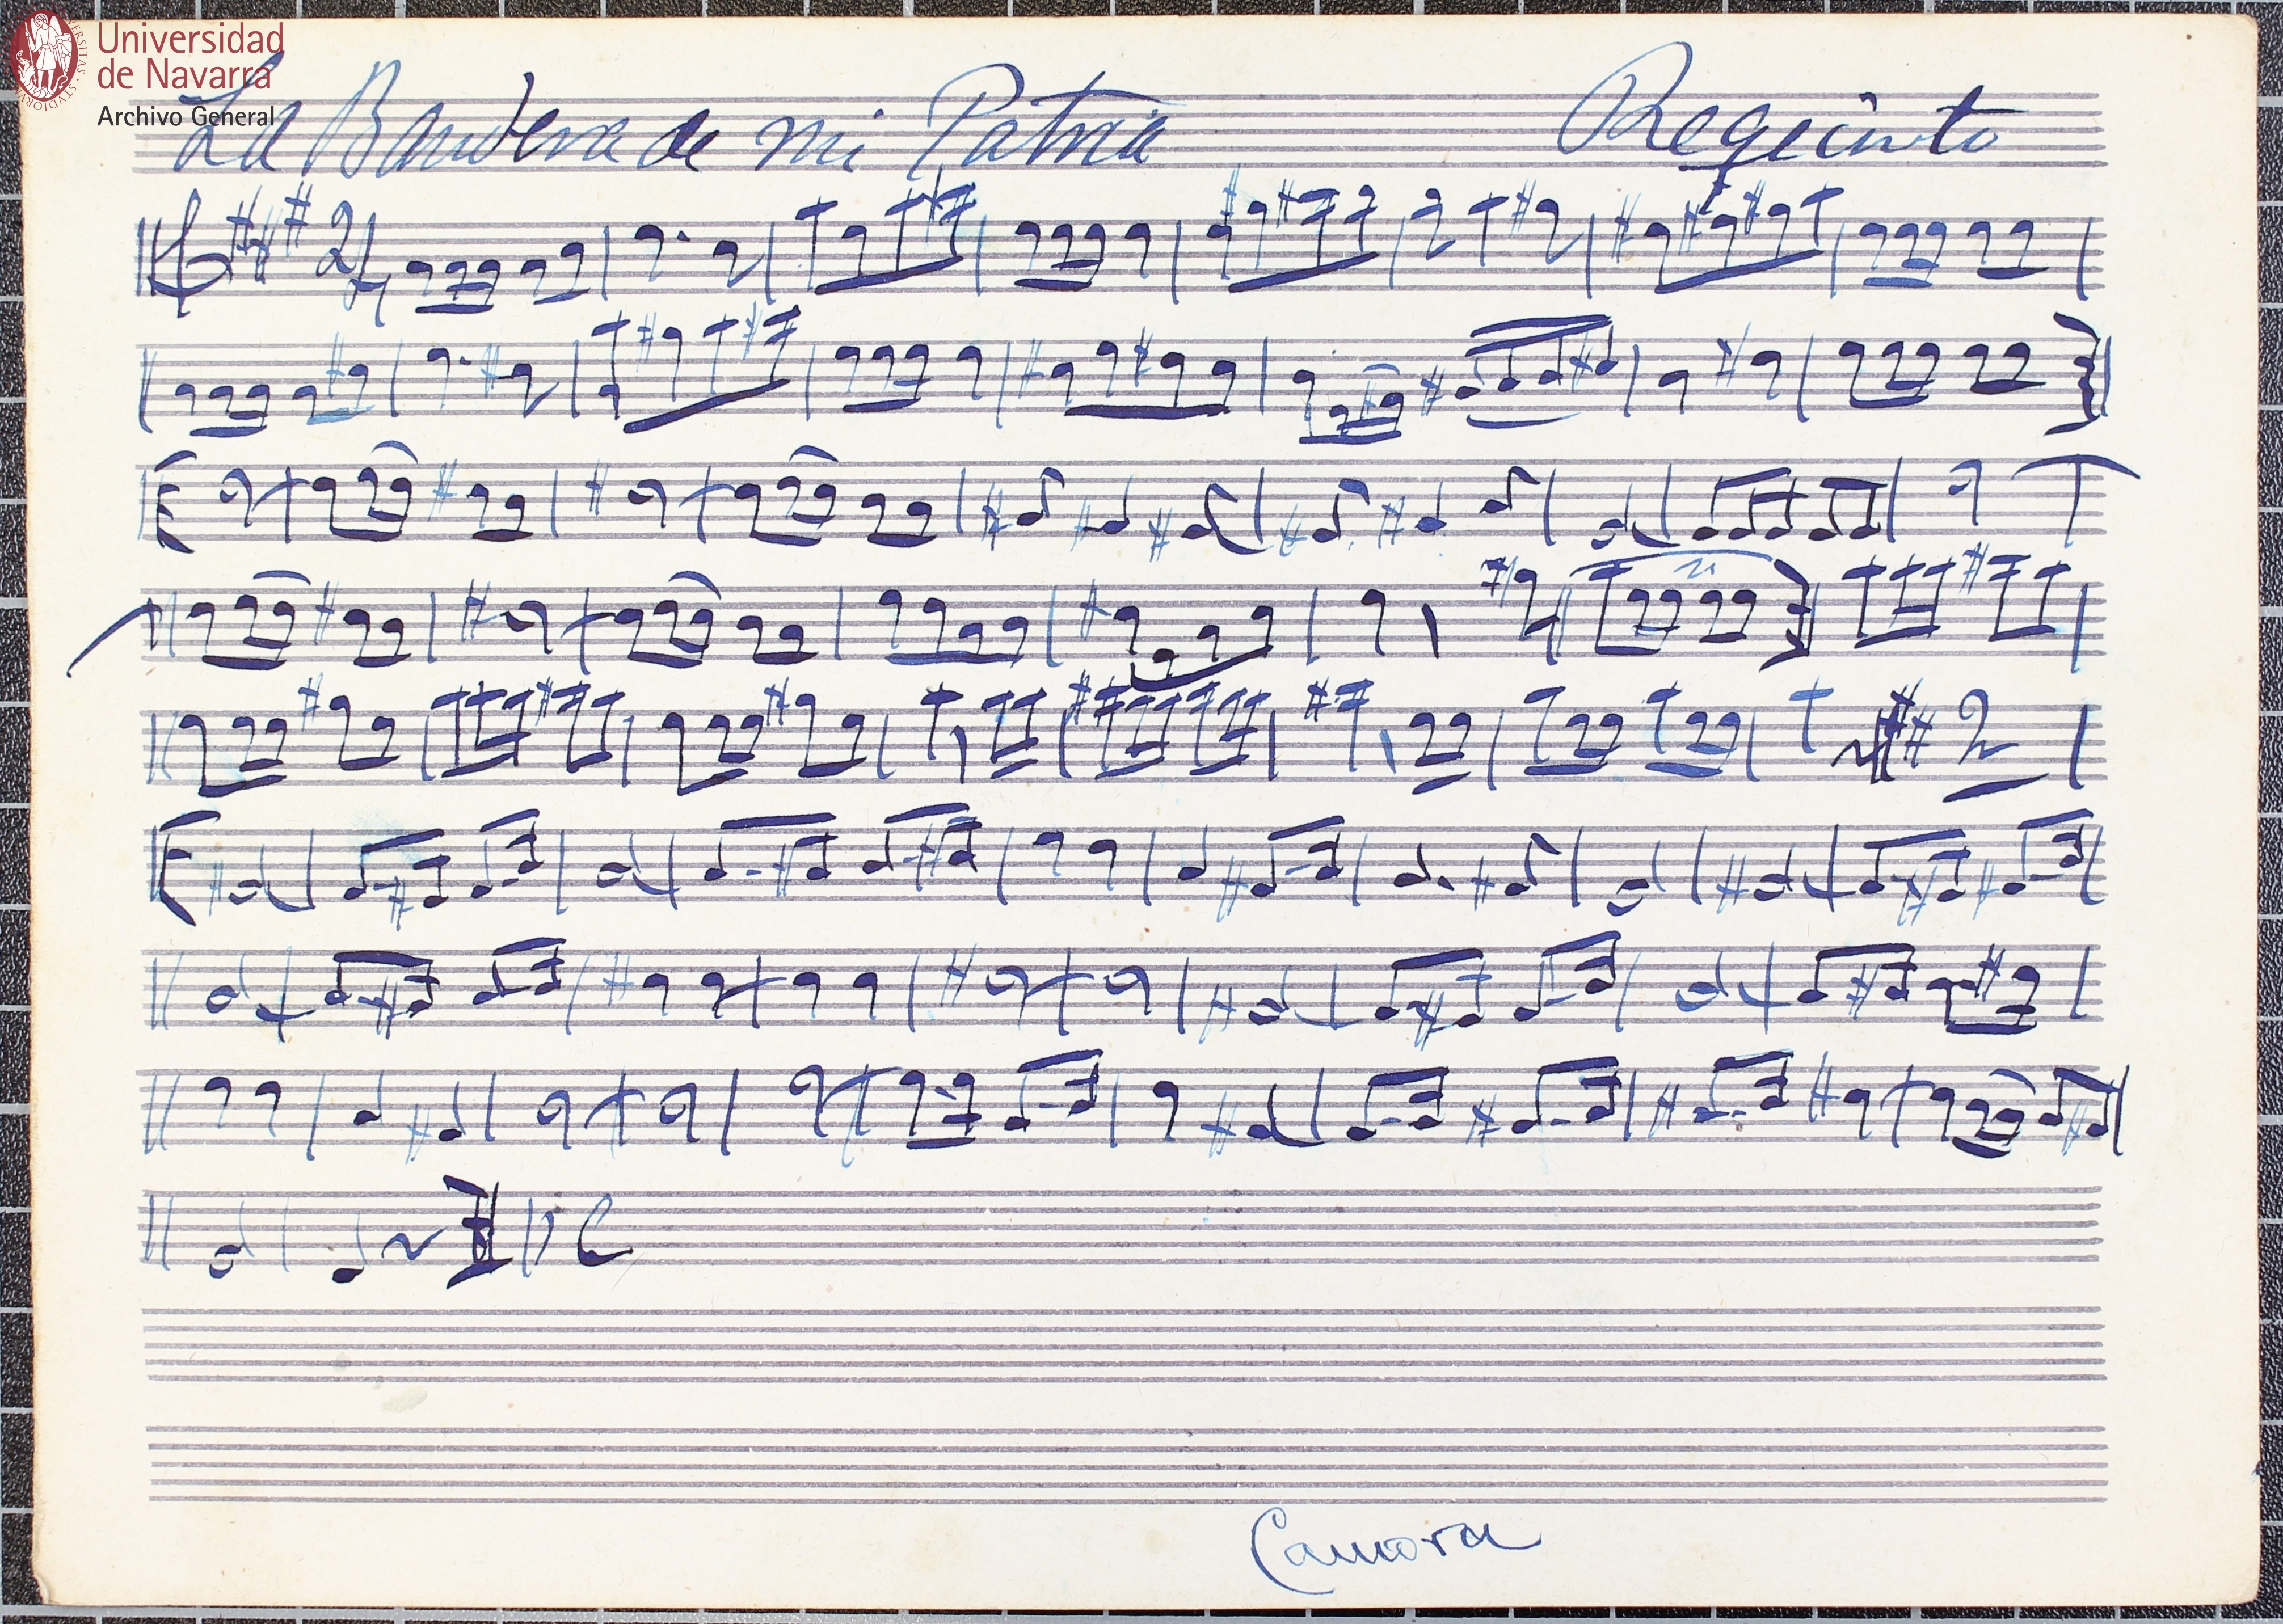 Universidad
de Navarra
Archivo General
La Bandera de mi Patria Requinto
2/4
2
D C
Camora